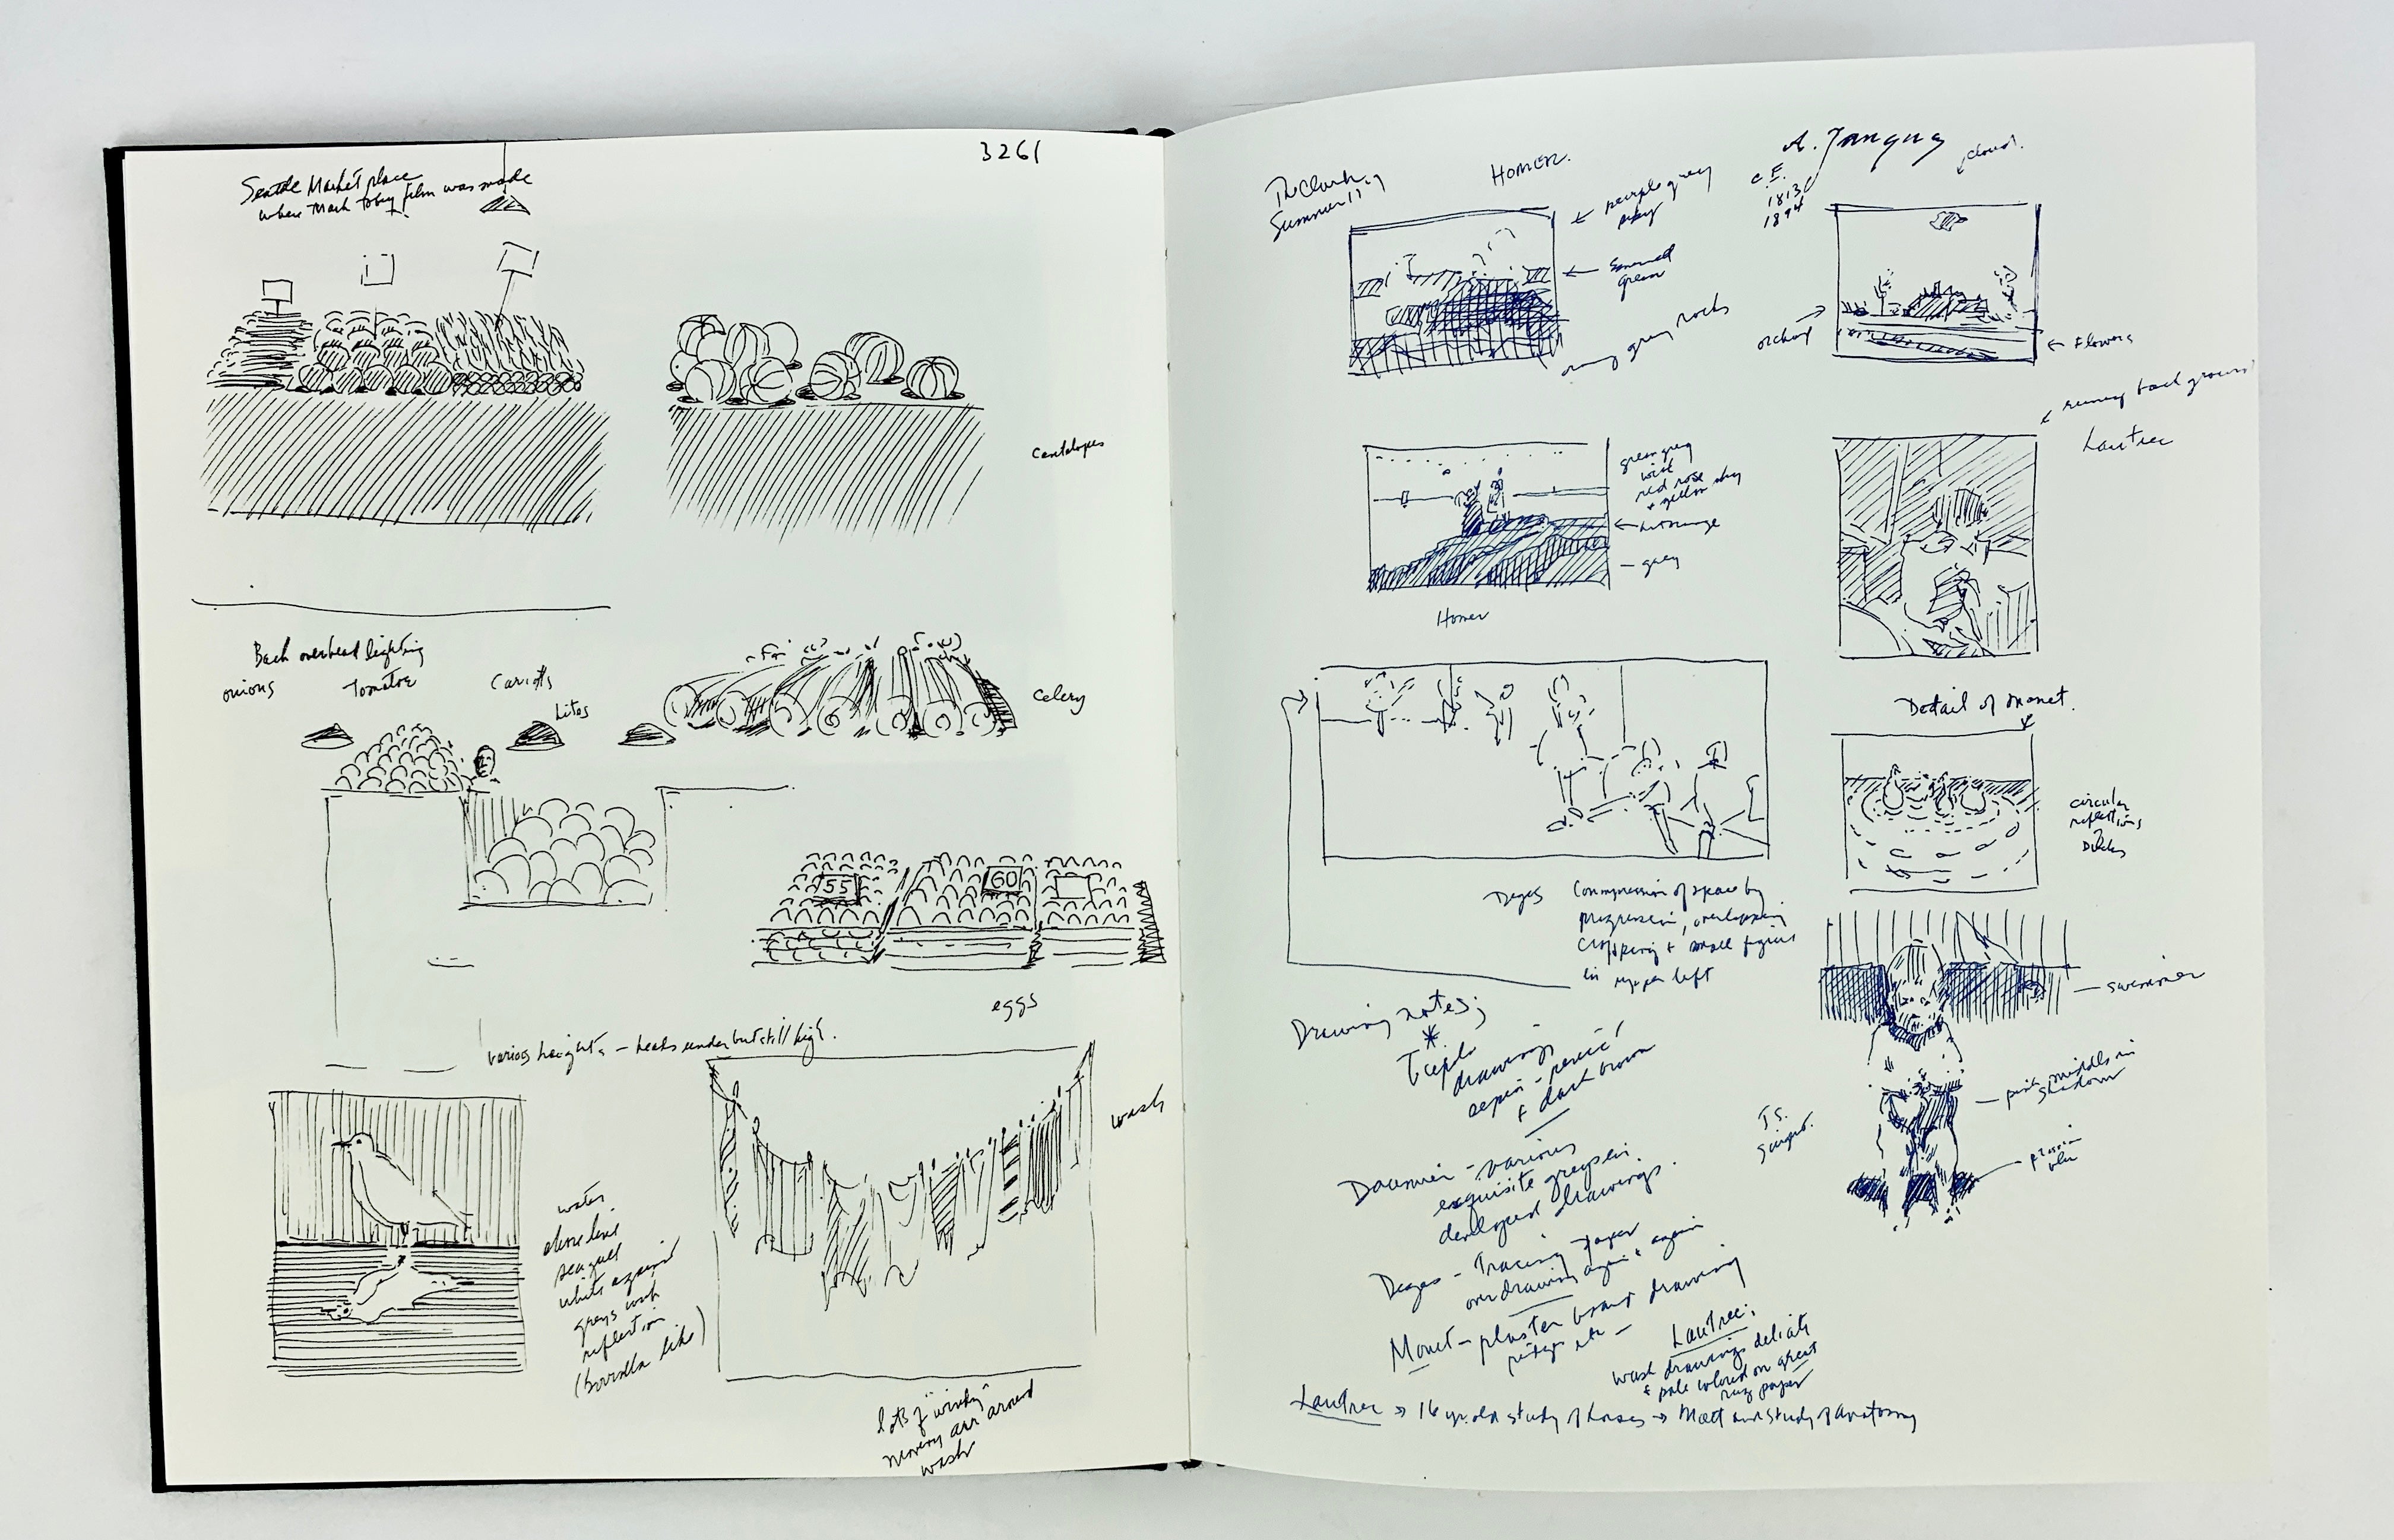 3261
Seattle Market place
where Mark Tobey film was made
cantalopes
Back overhead lighting
onions
Tomatoe
Carrotts
Lites
Celery
55
60
eggs
various heights – heads under but still high.
wash
water
above line
seagull
white against
greys wash
reflection
lots of "windy"
moving air around
wash
The Clark
Summer
HOMER.
purple grey
sky
green
orang grey rocks
A.
cloud.
1894
orchard
Flowers
background
Lautrec
green grey
with
red rose
+ yellow sky
grey
Homer
Detail of Monet.
circular
reflections
Ducks
Degas
Compression of space by
progression, overlapping
cropping + small figures
in upper left
swimmer
pink middle in
shadow
Drawing notes;
Tiepolo
drawings
sepia - pencil
+ dark brown
Daumier - various
exquisite greys in
developed drawings.
Degas - Tracing paper
over drawing again + again
Monet - plaster board drawing
Lautrec:
wash drawings delicate
+ pale colored on great
rag paper
Lautrec → 16 yr. old study of horses → Matt and study of anatomy